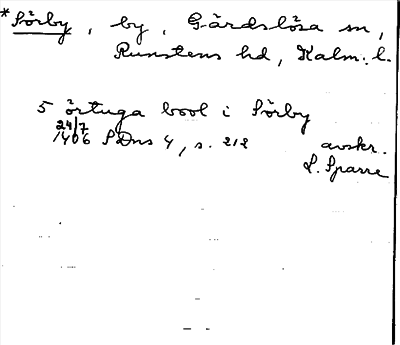 *Sörby, by, Gärdslösa sn,
Runstens hd, Kalm. l.
5 örtuga bool i Sörby
24/7
1406 SDns 4, s. 212 avskr.
L. Sparre